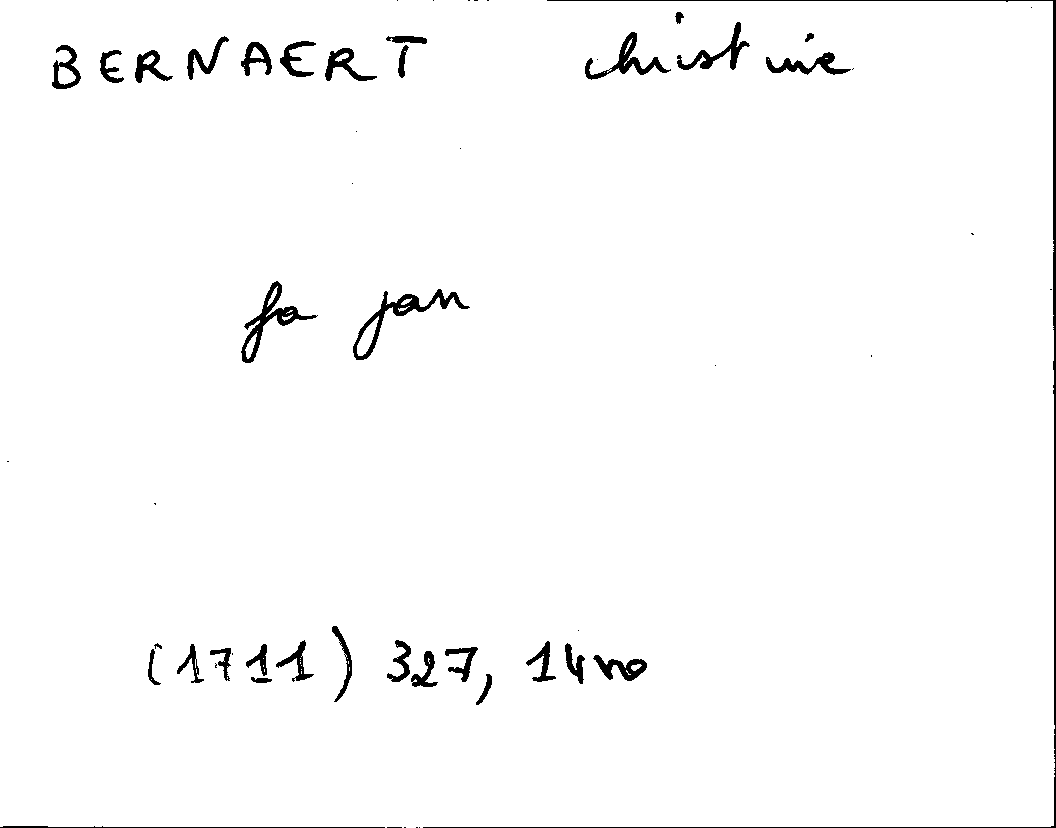 BERNAERT christine
fa jan
(1711) 327, 14 ro